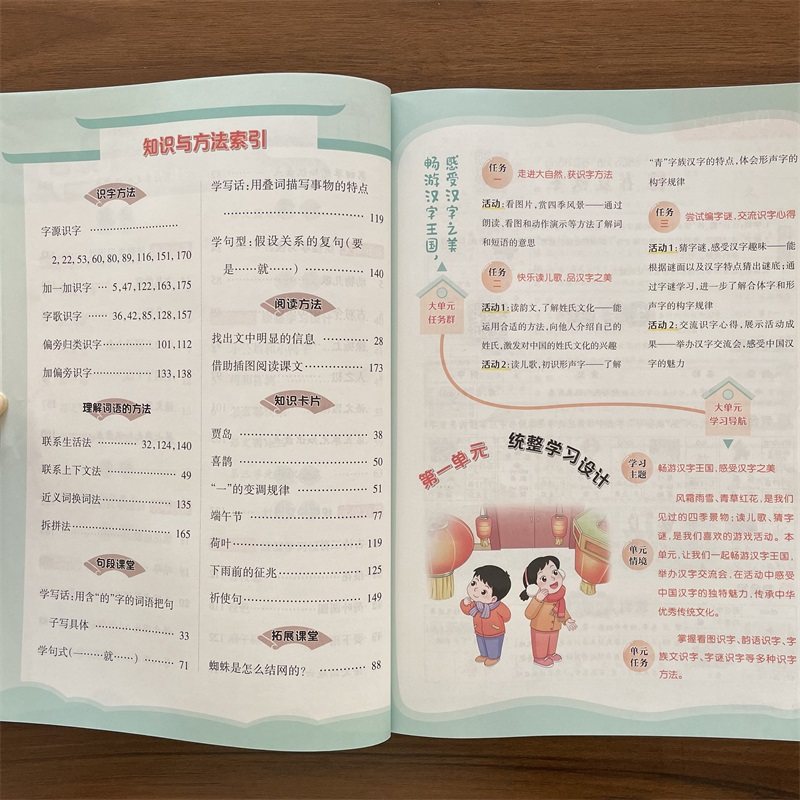 知识与方法索引
识字方法
字源识字 ………………
2,22,53,60,80,89,116,151,170
加一加识字 … 5,47,122,163,175
字歌识字 …… 36,42,85,128,157
偏旁归类识字 ………… 101,112
加偏旁识字 …………… 133,138
理解词语的方法
联系生活法 ……… 32,124,140
联系上下文法 ……………… 49
近义词换词法 …………… 135
拆拼法 …………………… 165
句段课堂
学写话:用含“的”字的词语把句
子写具体 ……………… 33
学句式(一……就……) …… 71
学写话:用叠词描写事物的特点
…………………… 119
学句型:假设关系的复句(要
是……就……) ………… 140
阅读方法
找出文中明显的信息 ……… 28
借助插图阅读课文 ……… 173
知识卡片
贾岛 ……………………… 38
喜鹊 ……………………… 50
“一”的变调规律 ………… 51
端午节 …………………… 77
荷叶 …………………… 119
下雨前的征兆 ………… 125
祈使句 ………………… 149
拓展课堂
蜘蛛是怎么结网的? ……… 88
畅游汉字王国,
感受汉字之美
大单元
任务群
任务
一
走进大自然,获识字方法
活动:看图片,赏四季风景——通过
朗读、看图和动作演示等方法了解词
和短语的意思
任务
二
快乐读儿歌,品汉字之美
活动1:读韵文,了解姓氏文化——能
运用合适的方法,向他人介绍自己的
姓氏,激发对中国的姓氏文化的兴趣
活动2:读儿歌,初识形声字——了解
“青”字族汉字的特点,体会形声字的
构字规律
任务
三
尝试编字谜,交流识字心得
活动1:猜字谜,感受汉字趣味——能
根据谜面以及汉字特点猜出谜底;通
过字谜学习,进一步了解合体字和形
声字的构字规律
活动2:交流识字心得,展示活动成
果——举办汉字交流会,感受中国汉
字的魅力
大单元
学习导航
第一单元 统整学习设计
学习
主题
畅游汉字王国,感受汉字之美
单元
情境
风霜雨雪、青草红花,是我们
见过的四季景物;读儿歌、猜字
谜,是我们喜欢的游戏活动。本
单元,让我们一起畅游汉字王国,
举办汉字交流会,在活动中感受
中国汉字的独特魅力,传承中华
优秀传统文化。
单元
任务
掌握看图识字、韵语识字、字
族文识字、字谜识字等多种识字
方法。